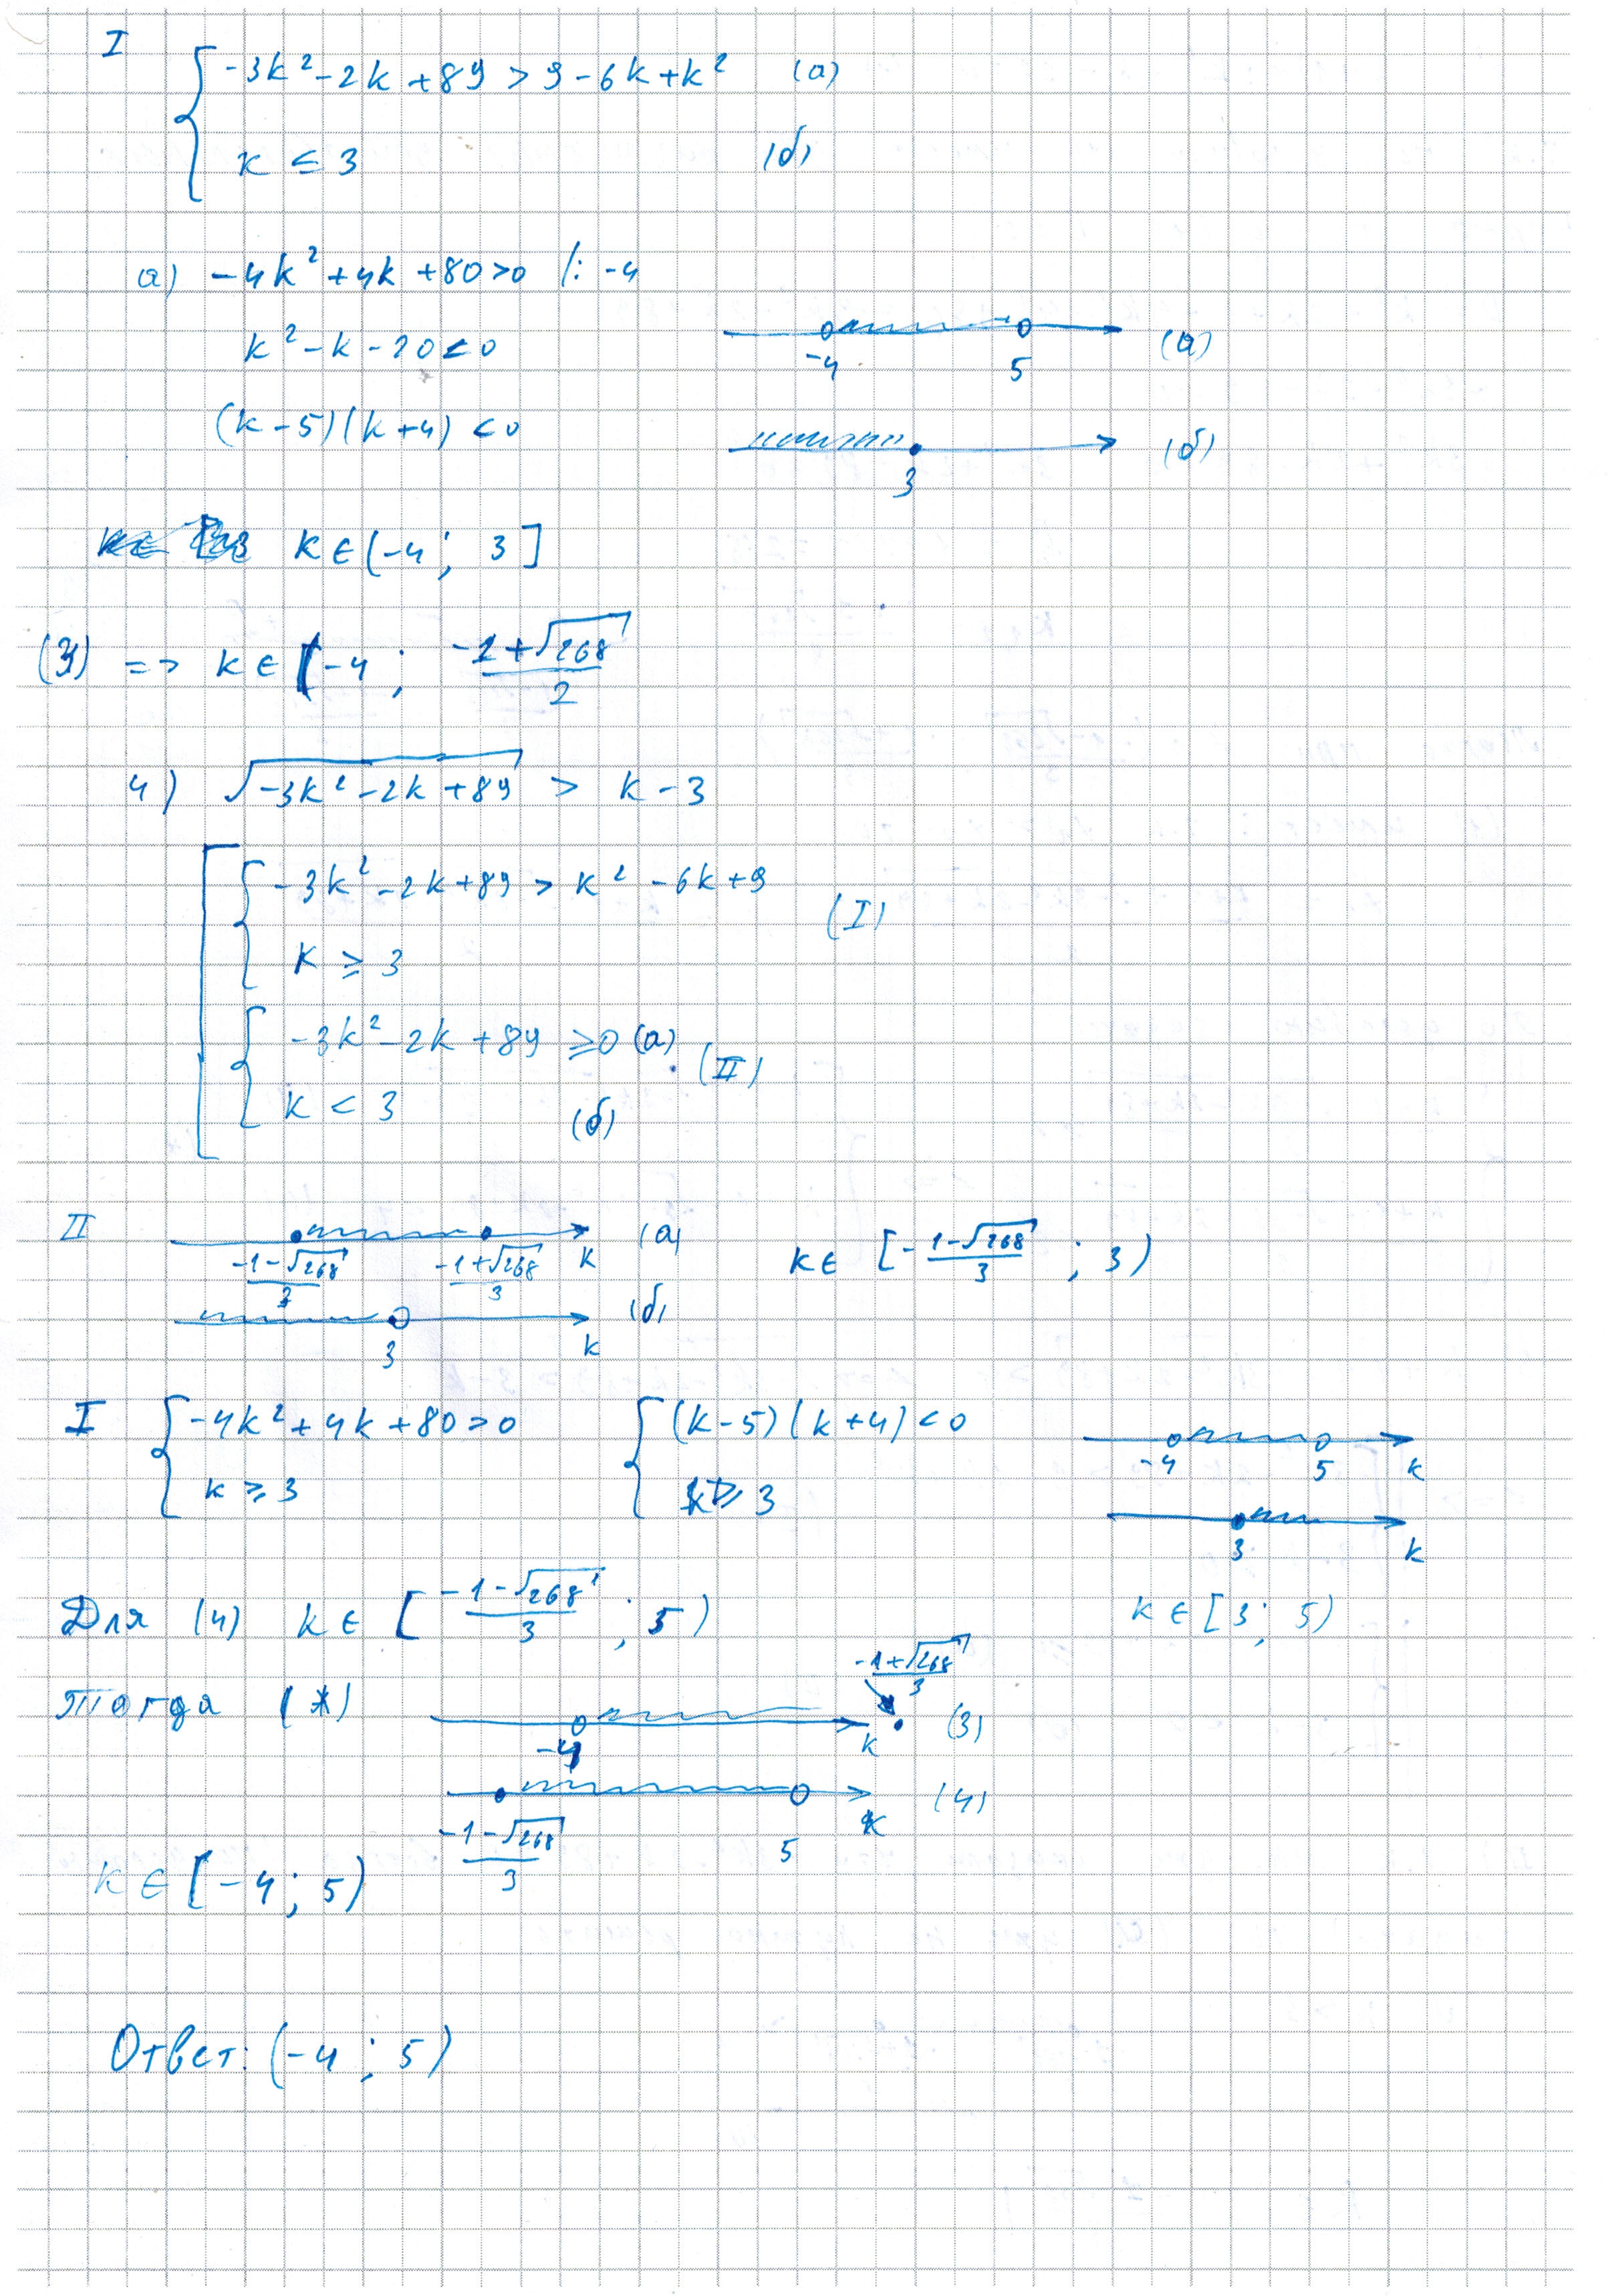 I
{ -3k² - 2k + 89 > 9 - 6k + k² (а)
k ≤ 3 (б)
а) -4k² + 4k + 80 > 0 /: -4
k² - k - 20 < 0
-4 5 (а)
(k - 5)(k + 4) < 0
3 (б)
k ∈ (-4; 3]
(3) => k ∈ (-4; (-1 + √268)/2
4) √(-3k² - 2k + 89) > k - 3
[ { -3k² - 2k + 89 > k² - 6k + 9
k ≥ 3 (I)
{ -3k² - 2k + 89 ≥ 0 (а)
k < 3 (б) (II)
II (-1 - √268)/3 (-1 + √268)/3 k (а) k ∈ [-(1 - √268)/3 ; 3)
3 k (б)
I { -4k² + 4k + 80 > 0 { (k - 5)(k + 4) < 0 -4 5 k
k ≥ 3 k ≥ 3 3 k
Для (4) k ∈ [(-1 - √268)/3 ; 5) k ∈ [3; 5)
Тогда (*) -4 k (-1 + √268)/3 (3)
(-1 - √268)/3 5 k (4)
k ∈ (-4; 5)
Ответ: (-4; 5)